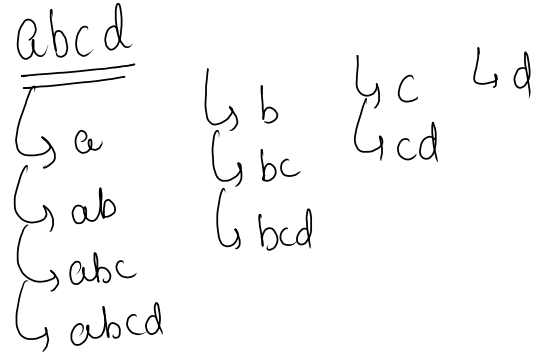 abcd
a
ab
abc
abcd
b
bc
bcd
c
cd
d